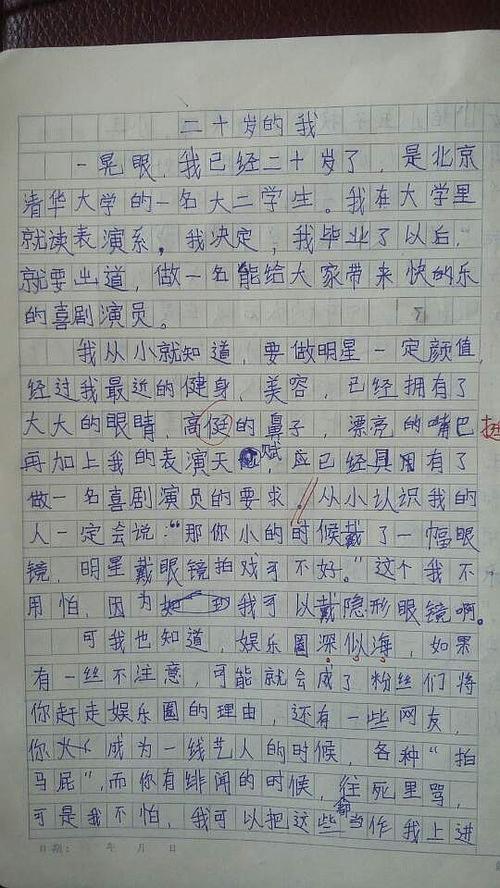 二十岁的我
一晃眼,我已经二十岁了,是北京
清华大学的一名大二学生。我在大学里
就读表演系。我决定,我毕业了以后,
就要出道,做一名能给大家带来快的乐
的喜剧演员。
我从小就知道,要做明星一定颜值,
经过我最近的健身、美容,已经拥有了
大大的眼睛,高侹的鼻子,漂亮的嘴巴 挺
再加上我的表演天赋,应已经具用有了
做一名喜剧演员的要求。//从小认识我的
人一定会说:“那你小的时候戴了一幅眼
镜,明星戴眼镜拍戏可不好。”这个我不
用怕,因为我可以戴隐形眼镜啊。
可我也知道,娱乐圈深似海,如果
有一丝不注意,可能就会成了粉丝们将
你赶走娱乐圈的理由,还有一些网友,
你火成为一线艺人的时候,各种“拍
马屁”,而你有绯闻的时候,往死里骂,
可是我不怕,我可以把这些都当作我上进
日期: 年 月 日